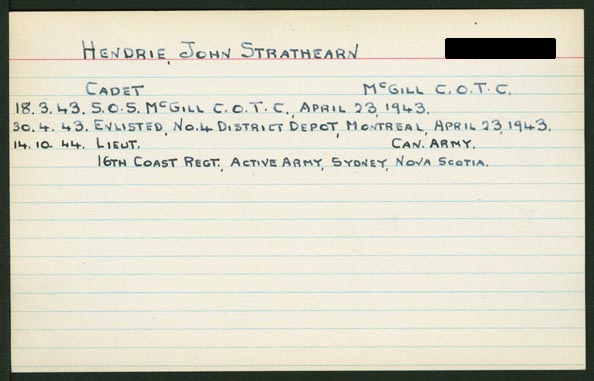 HENDRIE, JOHN STRATHEARN
CADET McGILL C.O.T.C.
18.3.43. S.O.S. McGILL C.O.T.C., APRIL 23, 1943.
30.4.43. ENLISTED, No.4 DISTRICT DEPOT, MONTREAL, APRIL 23, 1943.
14.10.44. LIEUT. CAN. ARMY.
16TH COAST REGT., ACTIVE ARMY, SYDNEY, NOVA SCOTIA.